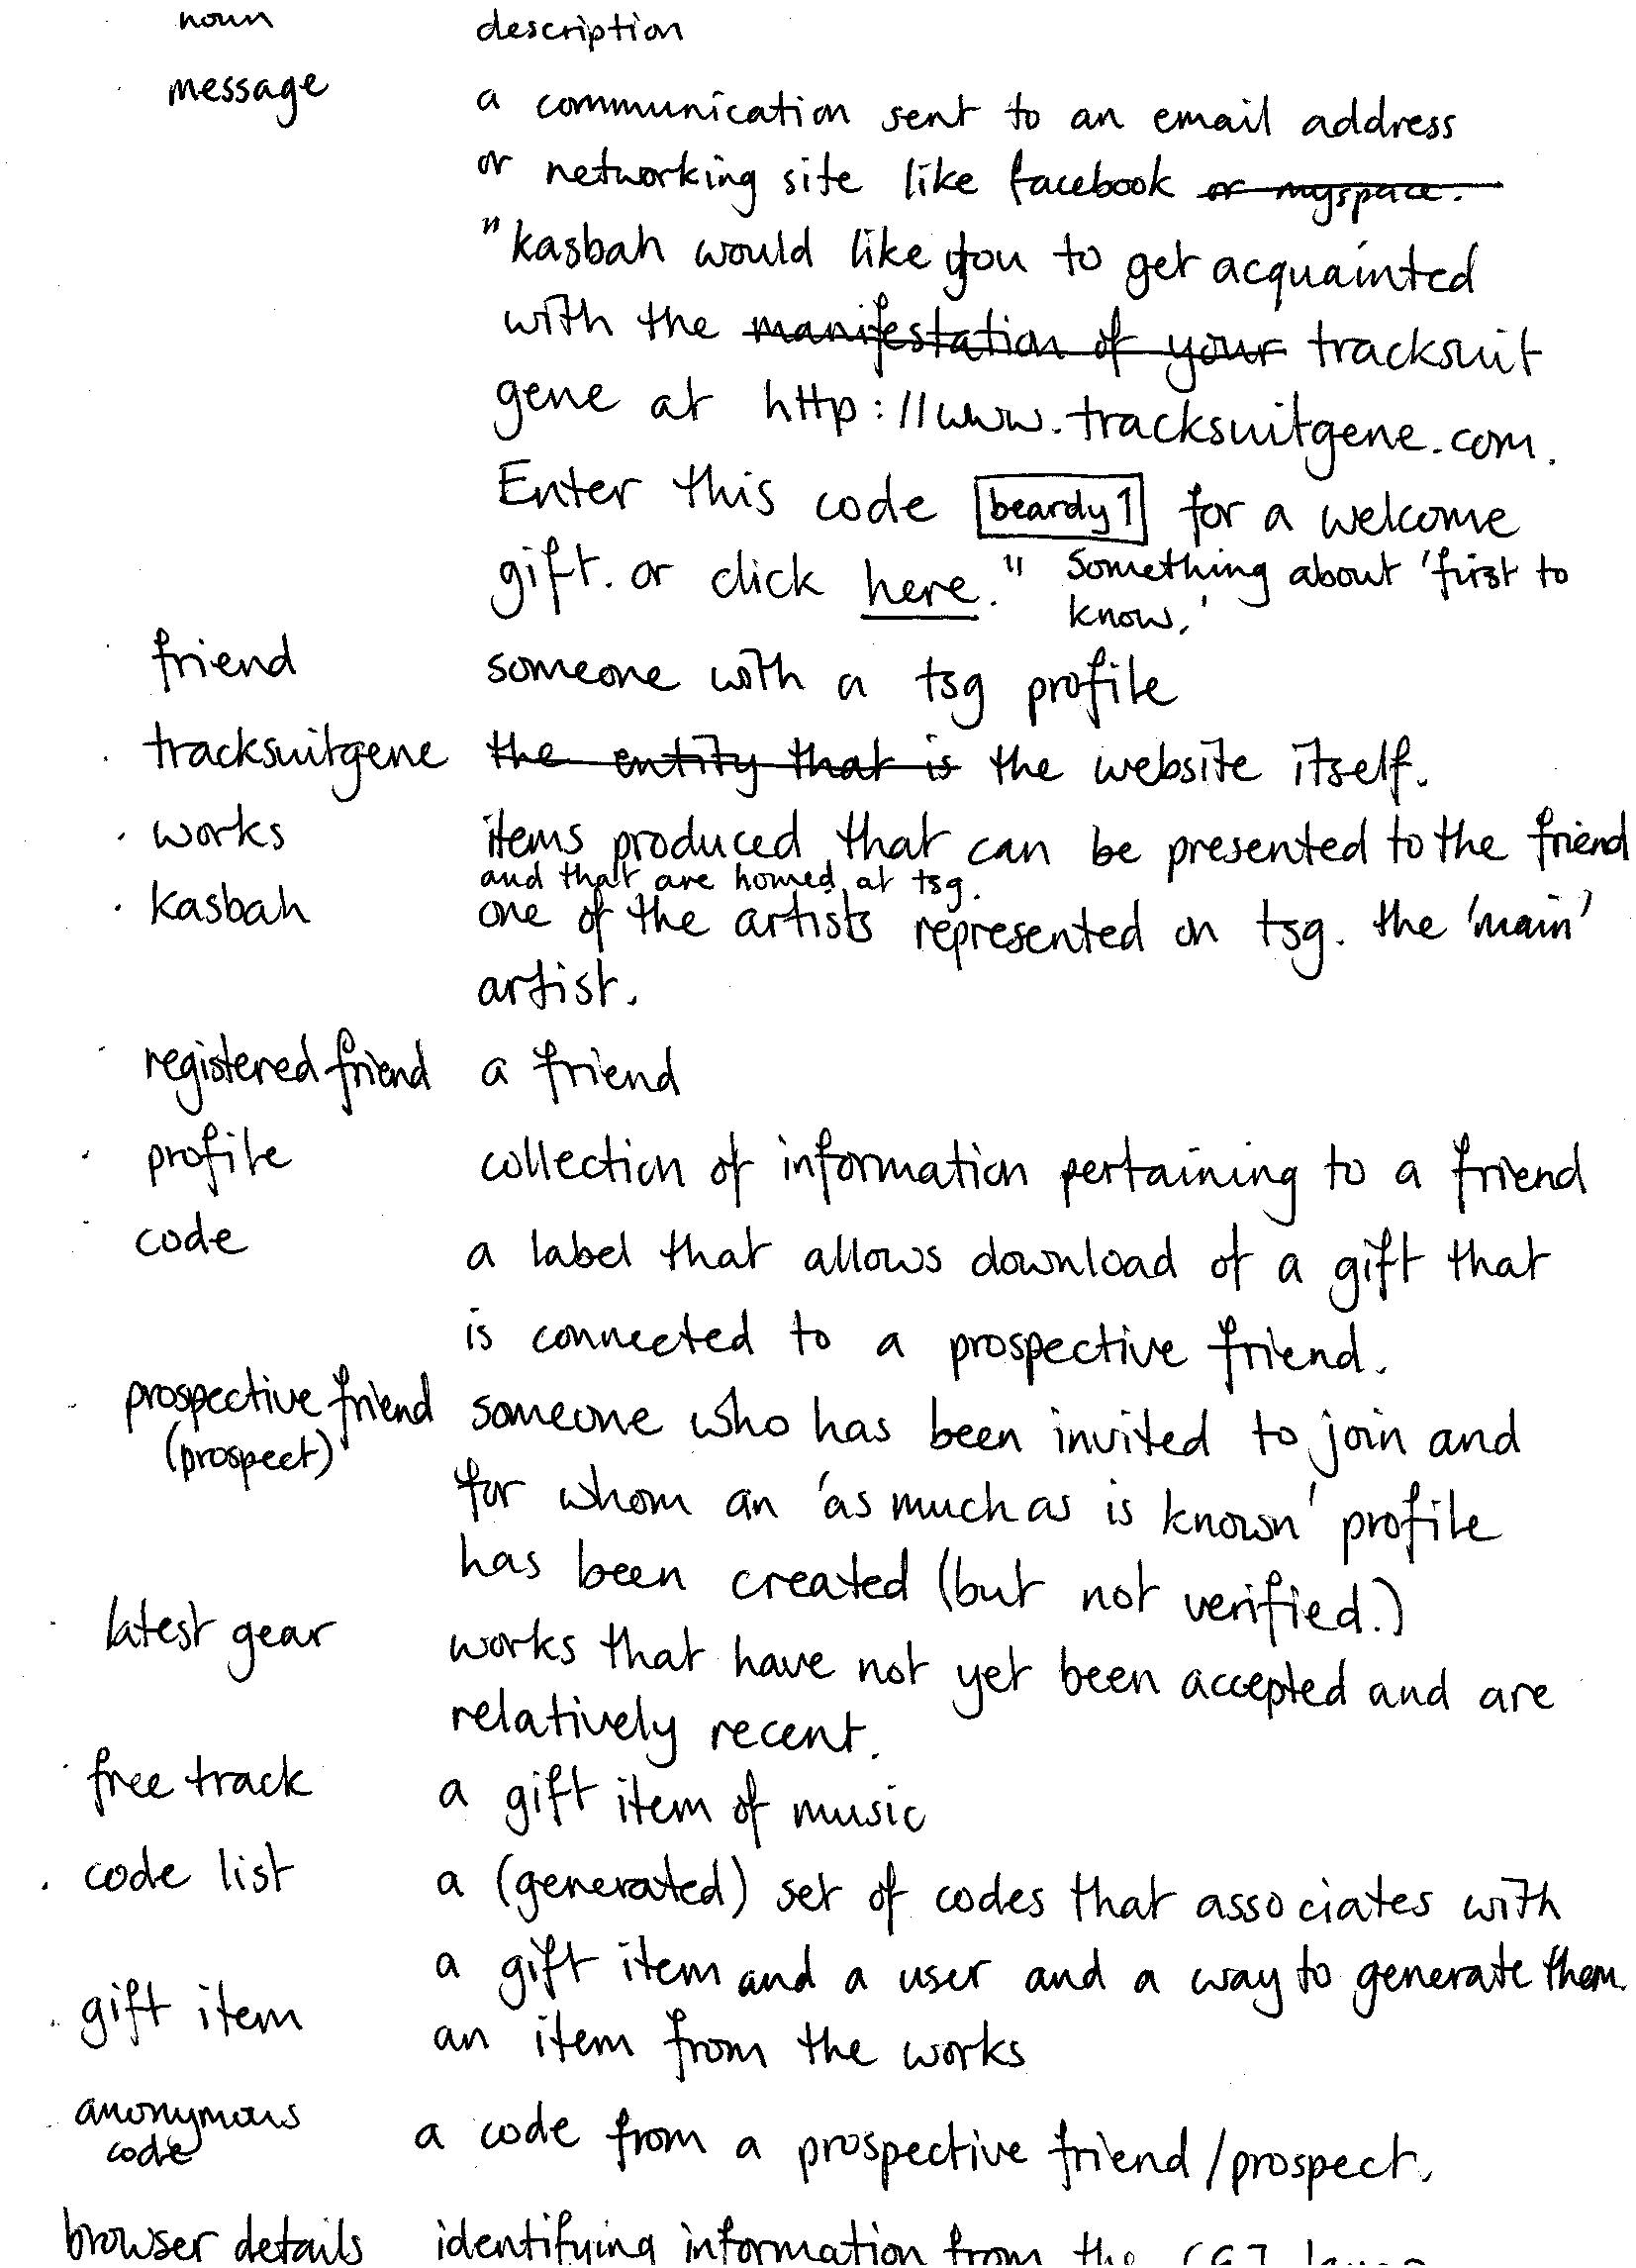 noun description
message a communication sent to an email address
or networking site like facebook ~~or myspace.~~
"kasbah would like you to get acquainted
with the ~~manifestation of your~~ tracksuit
gene at http://www.tracksuitgene.com.
Enter this code beardy1 for a welcome
gift. or click here." Something about 'first to
know.'
friend someone with a tsg profile
tracksuitgene ~~the entity that is~~ the website itself.
works items produced that can be presented to the friend
and that are homed at tsg.
kasbah one of the artists represented on tsg. the 'main'
artist.
registered friend a friend
profile collection of information pertaining to a friend
code a label that allows download of a gift that
is connected to a prospective friend.
prospective friend someone who has been invited to join and
(prospect) for whom an 'as much as is known' profile
has been created (but not verified.)
latest gear works that have not yet been accepted and are
relatively recent.
free track a gift item of music
code list a (generated) set of codes that associates with
a gift item and a user and a way to generate them.
gift item an item from the works
anonymous a code from a prospective friend/prospect.
code
browser details identifying information from the CGI layer